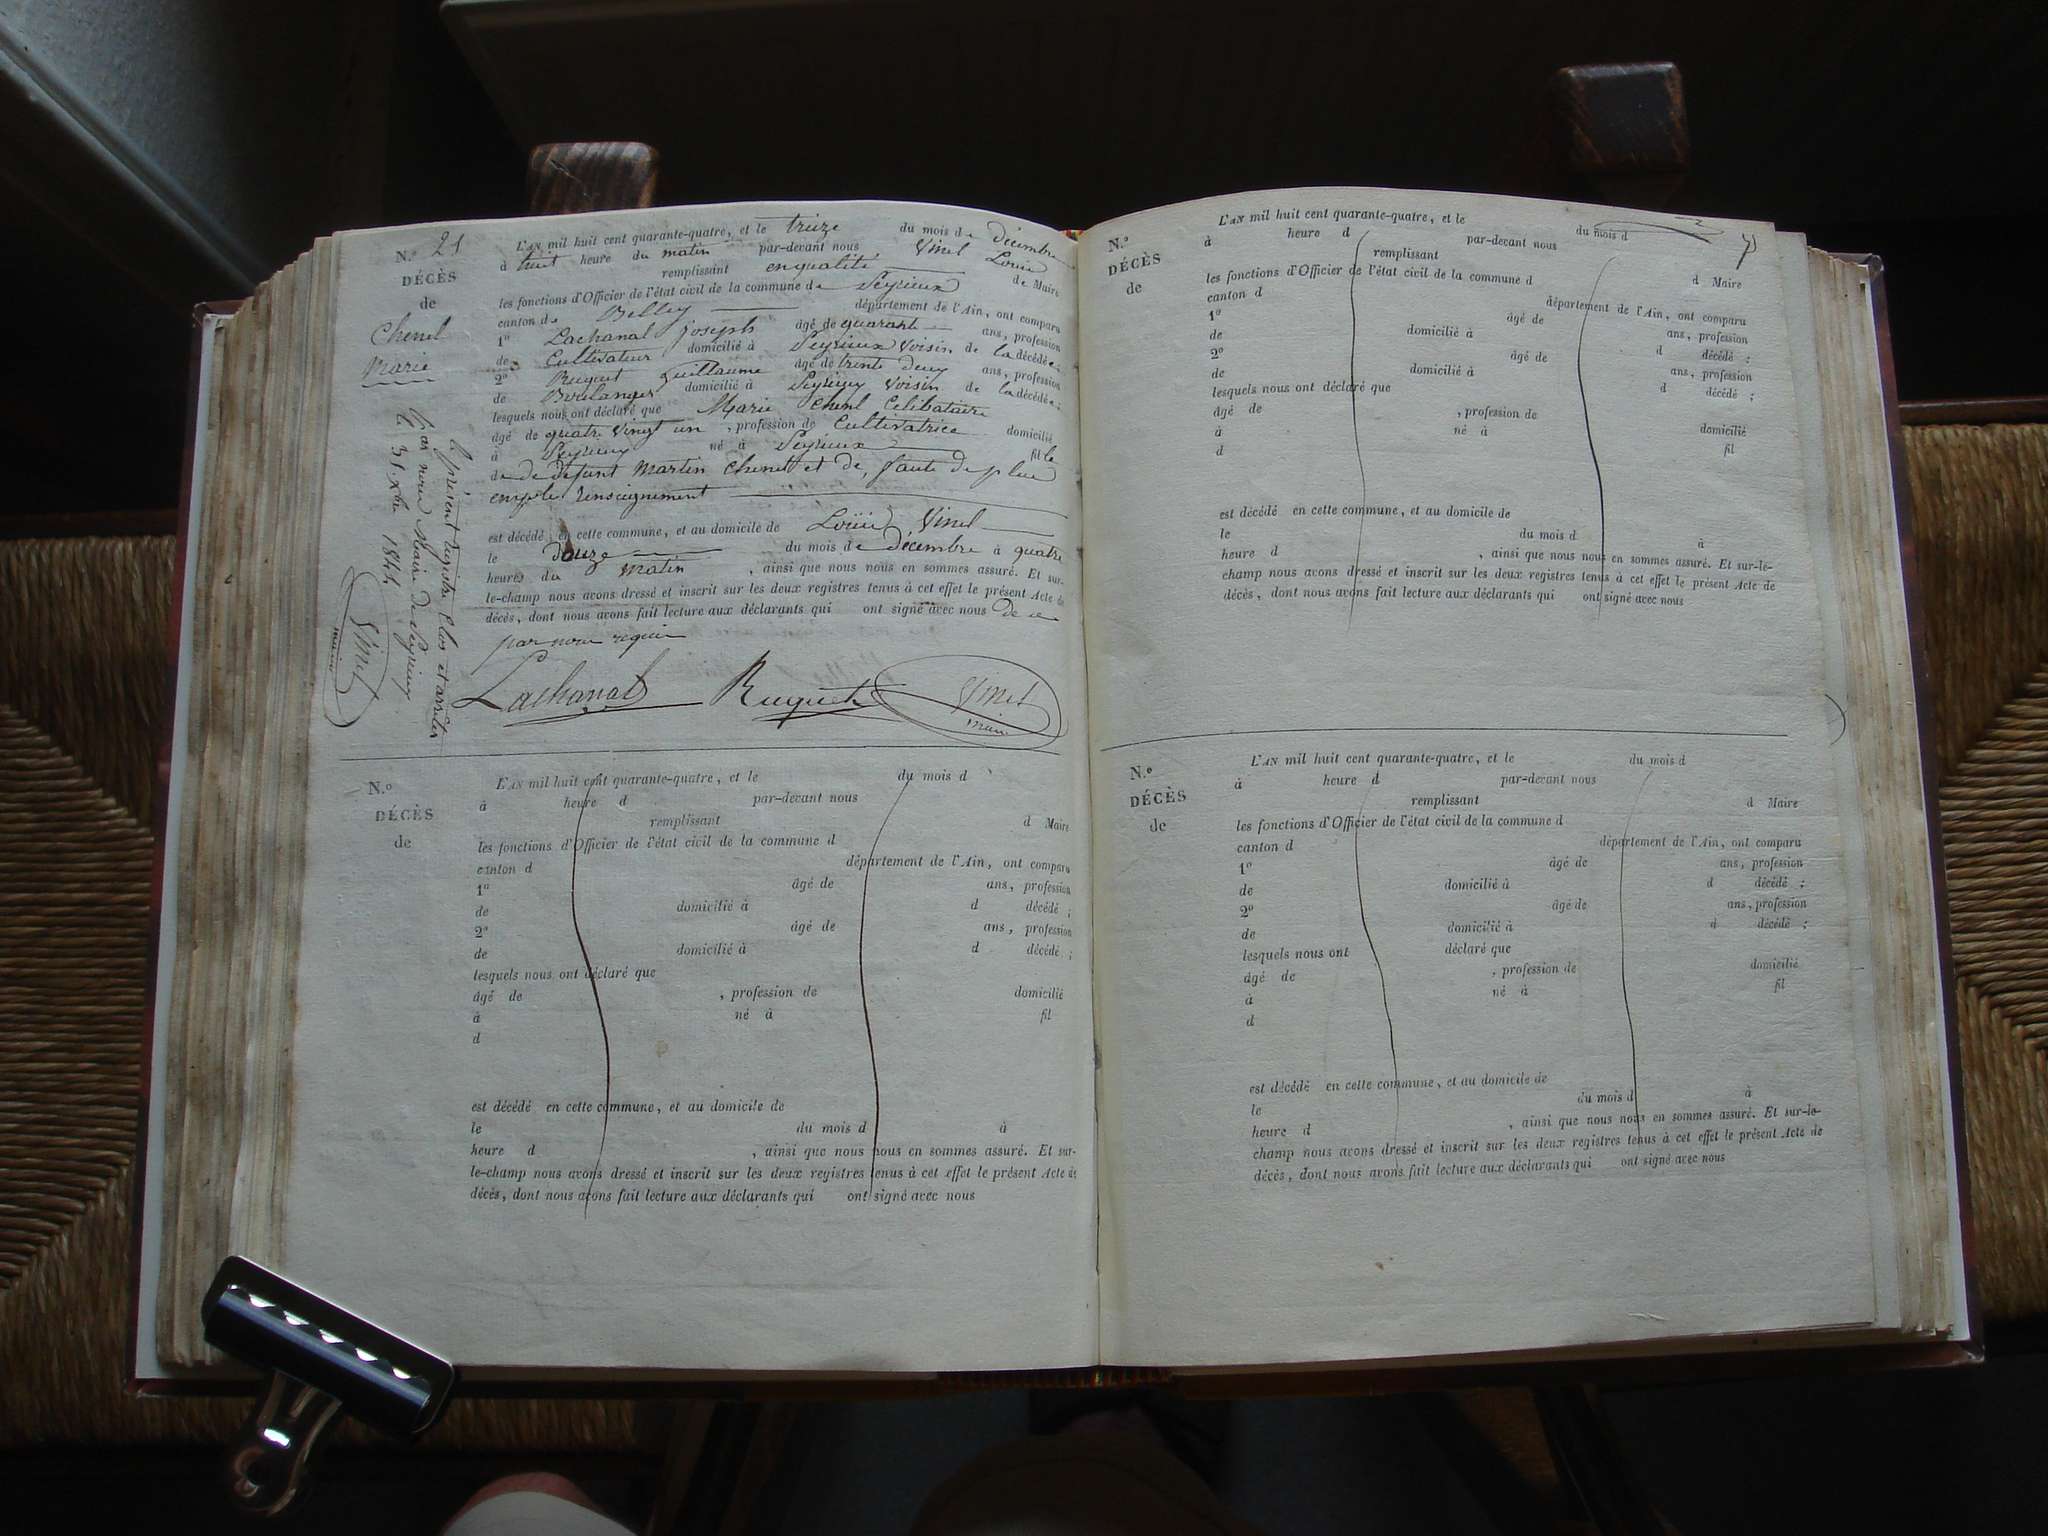 N.o 21
DÉCÈS
de
Chenel
Marie
L'AN mil huit cent quarante-quatre, et le treize du mois de décembre
à huit heure du matin par-devant nous Vinel Louis
remplissant en qualité de Maire
les fonctions d'Officier de l'état civil de la commune de Seyrieux
canton de Belley département de l'Ain, ont comparu
1o Lachanal joseph âgé de quarante ans, profession
de Cultivateur domicilié à Seyrieux voisin de la décédée;
2o Ruguet guillaume âgé de trente deux ans, profession
de Boulanger domicilié à voisin de la décédée;
lesquels nous ont déclaré que Marie Chenl Celibataire
âgé de quatre vingt un, profession de Cultivatrice domicilié
à né à Seyrieux fille
de de défunt Martin Chenel et de, faute de plus
emple renseignement
est décédé en cette commune, et au domicile de Louis Vinel
le douze du mois de décembre à quatre
heures du matin, ainsi que nous nous en sommes assuré. Et sur-
le-champ nous avons dressé et inscrit sur les deux registres tenus à cet effet le présent Acte de
décès, dont nous avons fait lecture aux déclarants qui ont signé avec nous de ce
par nous requis
Lachanal Ruguet Vinel
maire
le présent registre Clos et arrêter
par nous Maire de
le 31 xbre 1844
Vinel
maire
N.o
DÉCÈS
de
L'AN mil huit cent quarante-quatre, et le du mois d
à heure d par-devant nous
remplissant d Maire
les fonctions d'Officier de l'état civil de la commune d
canton d département de l'Ain, ont comparu
1o âgé de ans, profession
de domicilié à d décédé ;
2o âgé de ans, profession
de domicilié à d décédé ;
lesquels nous ont déclaré que
âgé de , profession de domicilié
à né à fil
d
est décédé en cette commune, et au domicile de
le du mois d à
heure d , ainsi que nous nous en sommes assuré. Et sur-
le-champ nous avons dressé et inscrit sur les deux registres tenus à cet effet le présent Acte de
décès, dont nous avons fait lecture aux déclarants qui ont signé avec nous
N.o
DÉCÈS
de
L'AN mil huit cent quarante-quatre, et le du mois d
à heure d par-devant nous
remplissant d Maire
les fonctions d'Officier de l'état civil de la commune d
canton d département de l'Ain, ont comparu
1o âgé de ans, profession
de domicilié à d décédé ;
2o âgé de ans, profession
de domicilié à d décédé ;
lesquels nous ont déclaré que
âgé de , profession de domicilié
à né à fil
d
est décédé en cette commune, et au domicile de
le du mois d à
heure d , ainsi que nous nous en sommes assuré. Et sur-le-
champ nous avons dressé et inscrit sur les deux registres tenus à cet effet le présent Acte de
décès, dont nous avons fait lecture aux déclarants qui ont signé avec nous
N.o
DÉCÈS
de
L'AN mil huit cent quarante-quatre, et le du mois d
à heure d par-devant nous
remplissant d Maire
les fonctions d'Officier de l'état civil de la commune d
canton d département de l'Ain, ont comparu
1o âgé de ans, profession
de domicilié à d décédé ;
2o âgé de ans, profession
de domicilié à d décédé ;
lesquels nous ont déclaré que
âgé de , profession de domicilié
à né à fil
d
est décédé en cette commune, et au domicile de
le du mois d à
heure d , ainsi que nous nous en sommes assuré. Et sur-le-
champ nous avons dressé et inscrit sur les deux registres tenus à cet effet le présent Acte de
décès, dont nous avons fait lecture aux déclarants qui ont signé avec nous